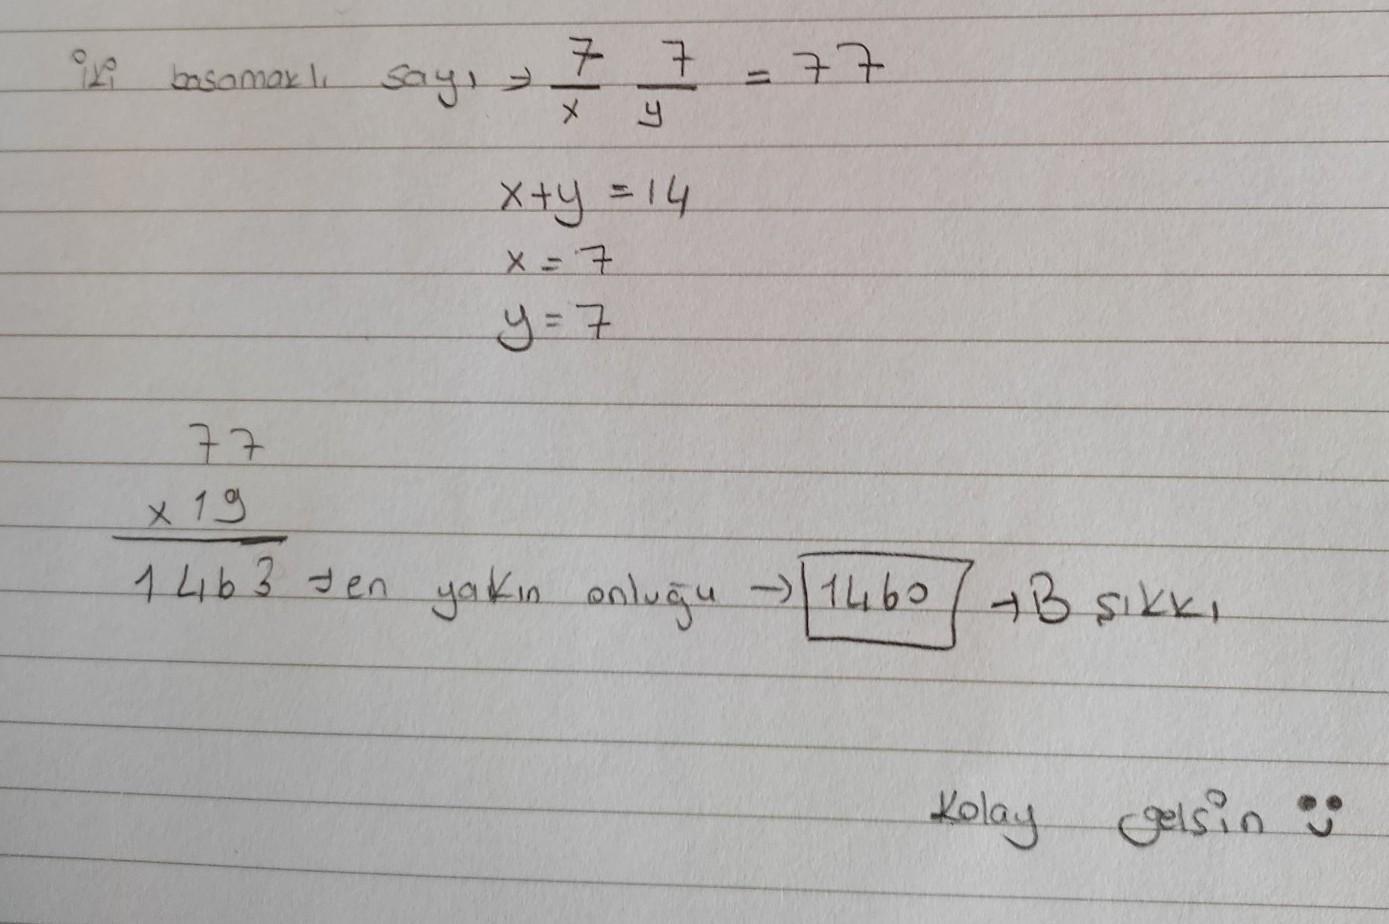 iki basamaklı sayı → 7 7 = 77
x y
x+y = 14
x = 7
y = 7
77
x 19
1463 → en yakın onluğu → 1460 → B şıkkı
Kolay gelsin